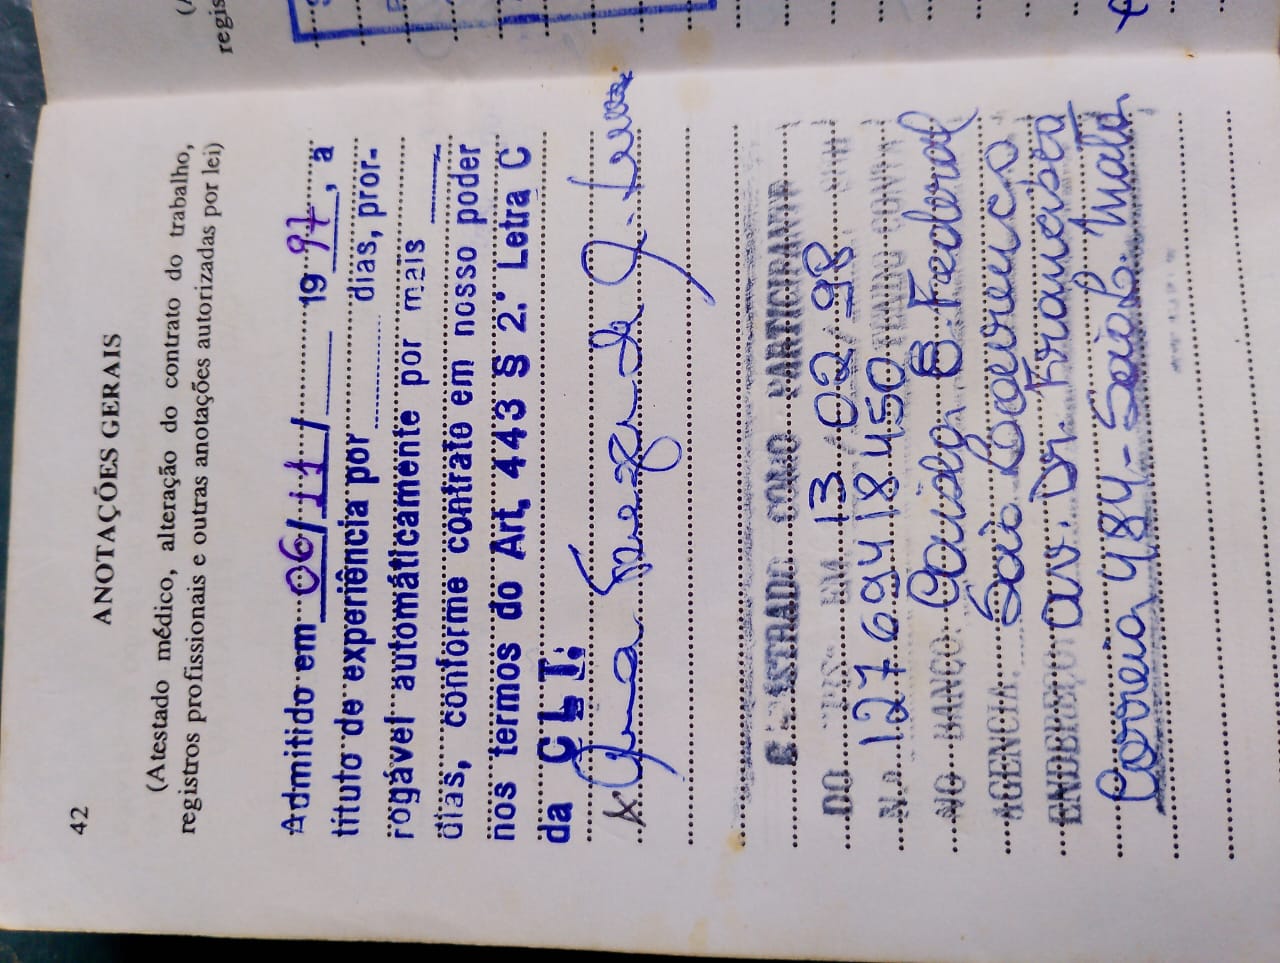 42
ANOTAÇÕES GERAIS
(Atestado médico, alteração do contrato do trabalho,
registros profissionais e outras anotações autorizadas por lei)
Admitido em 06/11/ 1997, a
título de experiência por dias, pror-
rogável automáticamente por mais
dias, conforme contrato em nosso poder
nos termos do Art, 443 § 2.º Letra C
da C L T.
CADASTRADO COMO PARTICIPANTE
DO EM 13/02/98
12769418450
NO BANCO. B. Federal
AGENCIA. São Lourenço
ENDEREÇO av. Dr. Francisco
Correia 484 - São L. Mata
(A
regis